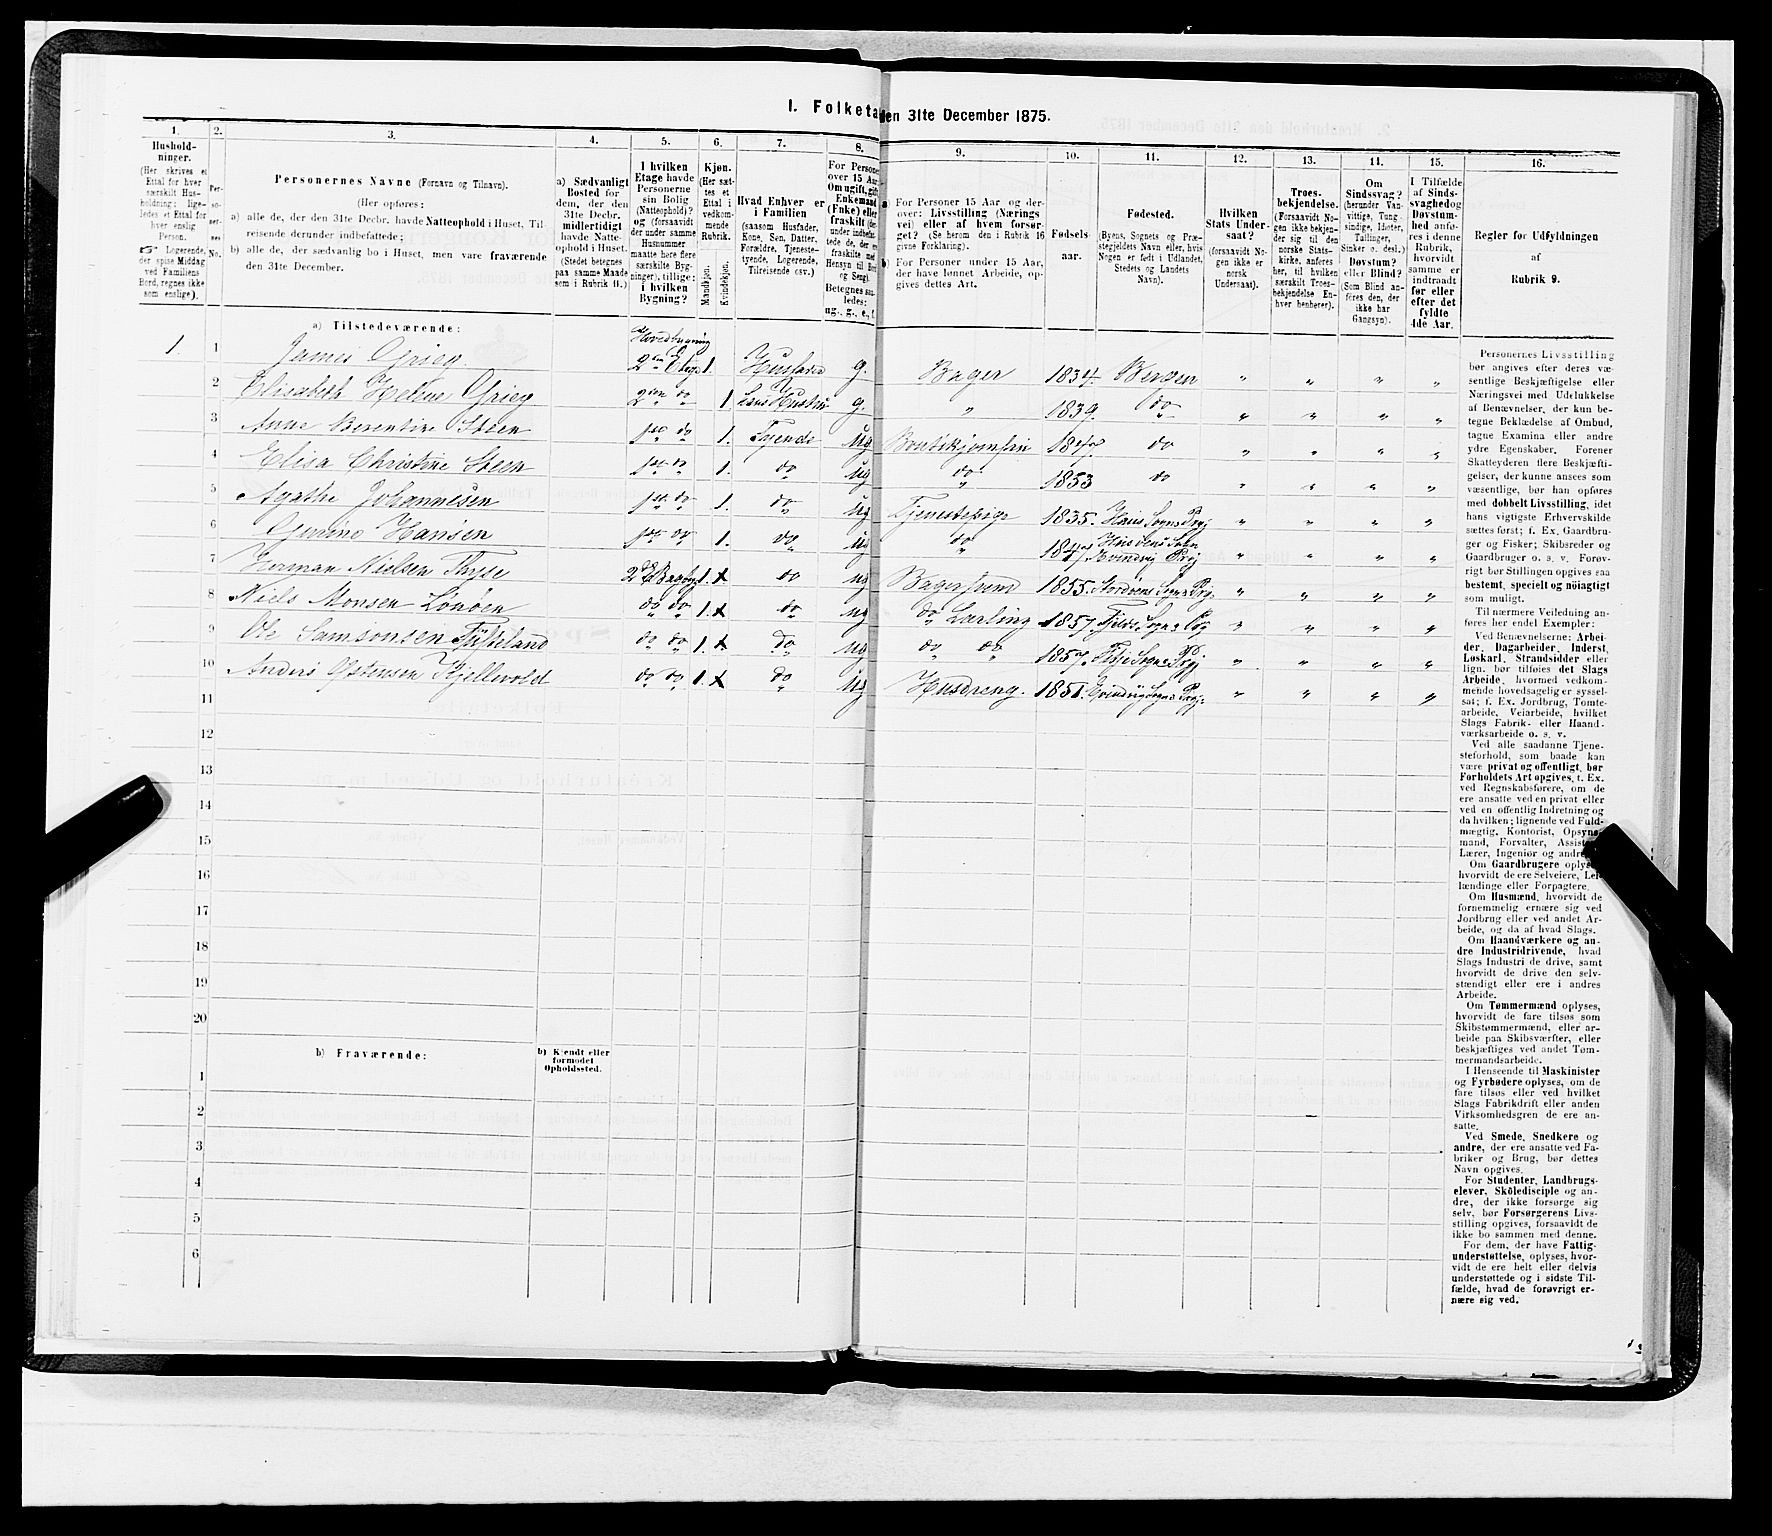 I. Folketa en 31te December 1875.
1. 2. 3. 4. 5. 6. 7. 8. 9. 10. 11. 12. 13. 14. 15. 16.
Hushold-
ninger.
(Her skrives et
Ettal for hver
særskilt Hus-
holdning; lige-
ledes et Ettal for
hver enslig
Person.
☞ Logerende,
der spise Middag
ved Familiens
Bord, regnes ikke
som enslige).
Per-
so-
ner-
nes
No.
Personernes Navne (Fornavn og Tilnavn).
(Her opføres:
a) alle de, der den 31te Decbr. havde Natteophold i Huset, Til-
reisende derunder indbefattede;
b) alle de, der sædvanlig bo i Huset, men vare fraværende
den 31te December.
a) Sædvanligt
Bosted for
dem, der den
31te Decbr.
midlertidigt
havde Natte-
ophold i Huset.
(Stedet betegnes
paa samme Maade
som i Rubrik 11.)
I hvilken
Etage havde
Personerne
sin Bolig
(Natteophold)?
og (forsaavidt
der under samme
Husnummer
maatte høre flere
særskilte Byg-
ninger), tillige:
i hvilken
Bygning?
Kjøn.
(Her sæt-
tes et
Ettal i
vedkom-
mende
Rubrik.
Mandkjøn.
Kvindekjøn.
Hvad Enhver er
i Familien
(saasom Husfader,
Kone, Søn, Datter,
Forældre, Tjeneste-
tyende, Logerende,
Tilreisende csv.)
For Persone
over 15 Aar:
Om ugift, gift
Enkemand
(Enke) eller
fraskilt (der-
under indbefat-
tede de, der ere
fraskilte med
Hensyn til Bord
og Seng).
Betegnes saa-
ledes:
ug., g., e., f.
a For Personer 15 Aar og der-
over: Livsstilling (Nærings
vei) eller af hvem forsør-
get? (Se herom den i Rubrik 16
givne Forklaring).
b) For Personer under 15 Aar,
der have lønnet Arbeide, op-
gives dettes Art.
Fødsels-
aar.
Fødested.
(Byens, Sognets og Præ-
stegjeldets Navn eller, hvis
Nogen er født i Udlandet,
Stedets og Landets
Navn).
Hvilken
Stats Under-
saat?
(forsaavidt No-
gen ikke er
norsk
Undersaat).
Troes-
bekjendelse.
(Forsaavidt No-
gen ikke bekjen-
der sig til den
norske Stats-
kirke, anføres
her, til hvilken
særskilt Troes-
bekjendelse En-
hver henhører).
Om
Sindssvag?
(herunder Van-
vittige, Tung-
sindige, Idioter,
Tullinger,
Sinker o. desl.)
Døvstum?
eller Blind?
(Som Blind an-
føres den, der
ikke har
Gangsyn).
I Tilfælde
af Sinds-
svaghed og
Døvstum-
hed anfø-
res i denne
Rubrik,
hvorvidt
samme er
indtraadt
før eller
efter det
fyldte
4de Aar.
Regler for Udfyldningen
af
Rubrik 9.
a) Tilstedeværende:
Hovedbygning
1. 1 James Grieg. 2den Etage 1. Husfader g. Bager 1834. Bergen " " " "
2 Elisabeth Helene Grieg 2den do 1. hans Hustru g. " 1839. do " " " "
3 Anne Berentine Steen 1ste do 1. Tjende ug do " " " "
4 Elisa Christine Steen 1ste do 1. do ug do 1853 do " " " "
5 Agathe Johannesen 1ste do 1. do ug Tjenestepige 1835. Haus Sogn Prgj " " " "
6 Hansen 1ste do 1. do ug do 1847 " " " "
7 Herman Nielsen do ug Bagersvend 1855. " " " "
8 Niels Monsen do do 1. do ug do Lærling 1857. " " " "
9 Ole Samsonsen do do 1. do ug do do 1857. " " " "
10 Anders Kjellevold do do 1. do ug Husdreng. 1851. " " " "
11
12
13
14
15
16
17
18
19
20
b) Fraværende:
b) Kjendt eller
formodet
Opholdssted.
1
2
3
4
5
6
Personernes Livsstilling
bør angives efter deres væ-
sentlige Beskjæftigelse eller
Næringsvei med Udelukkelse
af Benævnelser, der kun be-
tegne Beklædelse af Ombud,
tagne Examina eller andre
ydre Egenskaber. Forener
Skatteyderen flere Beskjæfti-
gelser, der kunne ansees som
væsentlige, bør han opføres
med dobbelt Livsstilling, idet
hans vigtigste Erhvervskilde
sættes først; f. Ex. Gaardbru-
ger og Fisker; Skibsreder og
Gaardbruger o. s. v. Forøv-
rigt bør Stillingen opgives saa
bestemt, specielt og nöiagtigt
som muligt.
Til nærmere Veiledning an-
føres her endel Exempler:
Ved Benævnelserne: Arbei-
der, Dagarbeider, Inderst,
Løskarl, Strandsidder eller
lign. bør tilføies det Slags
Arbeide, hvormed vedkom-
mende hovedsagelig er syssel-
sat; f. Ex. Jordbrug, Tomte-
arbeide, Veiarbeide, hvilket
Slags Fabrik- eller Haand-
værksarbeide o. s. v.
Ved alle saadanne Tjene-
steforhold, som baade kan
være privat og offentligt, bør
Forholdets Art opgives, t. Ex.
ved Regnskabsførere, om de
ere ansatte ved en privat eller
ved en offentlig Indretning og
da hvilken; lignende ved Fuld-
mægtig, Kontorist, Opsyns-
mand, Forvalter, Assist
Lærer, Ingeniør og andre
Om Gaardbrugere oplys
hvorvidt de ere Selveiere, Lei-
lændinge eller Forpagtere.
Om Husmænd, hvorvidt de
fornemmelig ernære sig ved
Jordbrug eller ved andet Ar-
beide, og da af hvad Slags.
Om Haandværkere og an-
dre Industridrivende, hvad
Slags Industri de drive, samt
hvorvidt de drive den selv-
stændigt eller ere i andres
Arbeide.
Om Tømmermænd oplyses,
hvorvidt de fare tilsøs som
Skibstømmermænd, eller ar-
beide paa Skibsværfter, eller
beskjæftiges ved andet Tøm-
mermandsarbeide.
I Henseende til Maskinister
og Fyrbødere oplyses, om de
fare tilsøs eller ved hvilket
Slags Fabrikdrift eller anden
Virksomhedsgren de ere an-
satte.
Ved Smede, Snedkere og
andre, der ere ansatte ved Fa-
briker og Brug, bør dettes
Navn opgives.
For Studenter, Landbrugs-
elever, Skoledisciple og an-
dre, der ikke forsørge sig
selv, bør Forsørgerens Livs-
stilling opgives, forsaavidt de
ikke bo sammen med denne.
For dem, der have Fattig-
understøttelse, oplyses, hvor-
vidt de ere helt eller delvis
understøttede og i sidste Til-
fælde, hvad de forøvrigt er-
nære sig ved.